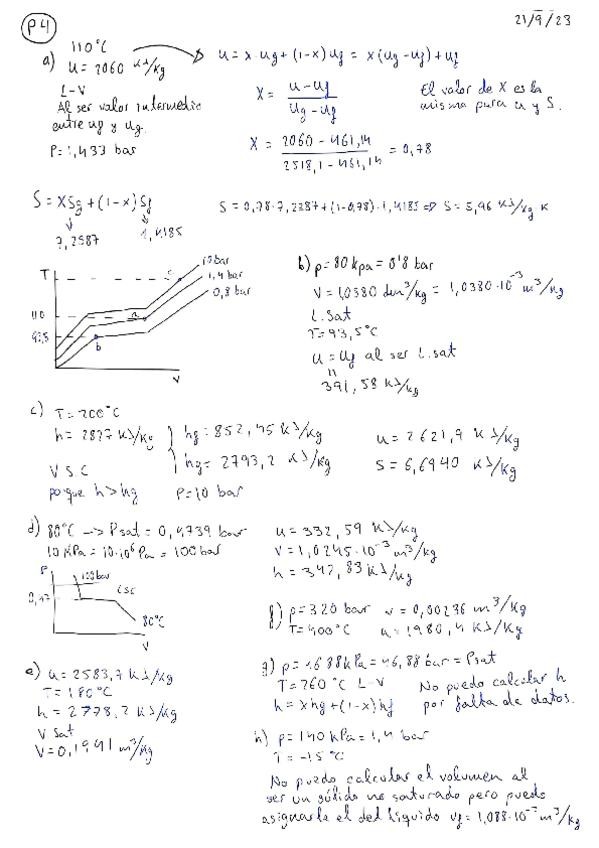 P4
21/9/23
a) 110°C
u = 2060 kJ/kg
L-V
Al ser valor intermedio
entre uf y ug.
P = 1,433 bar
u = x·ug + (1-x) uf = x(ug - uf) + uf
x = u - uf / ug - uf
El valor de x es la
misma para u y s.
x = 2060 - 461,14 / 2518,1 - 461,14 = 0,78
S = x Sg + (1-x) Sf
7,2387 1,4185
S = 0,78·7,2387 + (1-0,78)·1,4185 ⇒ S = 5,96 kJ/kg K
T
110
93,5
10 bar
1,4 bar
0,8 bar
a
b
c
V
b) p = 80 kPa = 0'8 bar
V = 1,0380 dm³/kg = 1,0380·10⁻³ m³/kg
L. Sat
T = 93,5°C
u = uf al ser L. sat
391,58 kJ/kg
c) T = 200°C
h = 2827 kJ/kg
hf = 852,45 kJ/kg
hg = 2793,2 kJ/kg
V S C
porque h > hg
P = 10 bar
u = 2621,9 kJ/kg
S = 6,6940 kJ/kg
d) 80°C → Psat = 0,4739 bar
10 MPa = 10·10⁶ Pa = 100 bar
P
100 bar
0,47
LSC
80°C
V
u = 332,59 kJ/kg
V = 1,0245·10⁻³ m³/kg
h = 342,83 kJ/kg
e) u = 2583,7 kJ/kg
T = 180°C
h = 2778,2 kJ/kg
V sat
V = 0,1941 m³/kg
f) p = 320 bar v = 0,00236 m³/kg
T = 400°C u = 1980,4 kJ/kg
g) p = 4688 kPa = 46,88 bar = Psat
T = 260°C L-V
h = x hg + (1-x) hf
No puedo calcular h
por falta de datos.
h) p = 140 kPa = 1,4 bar
T = -15°C
No puedo calcular el volumen al
ser un sólido no saturado pero puedo
asignarle el del líquido vf = 1,088·10⁻³ m³/kg